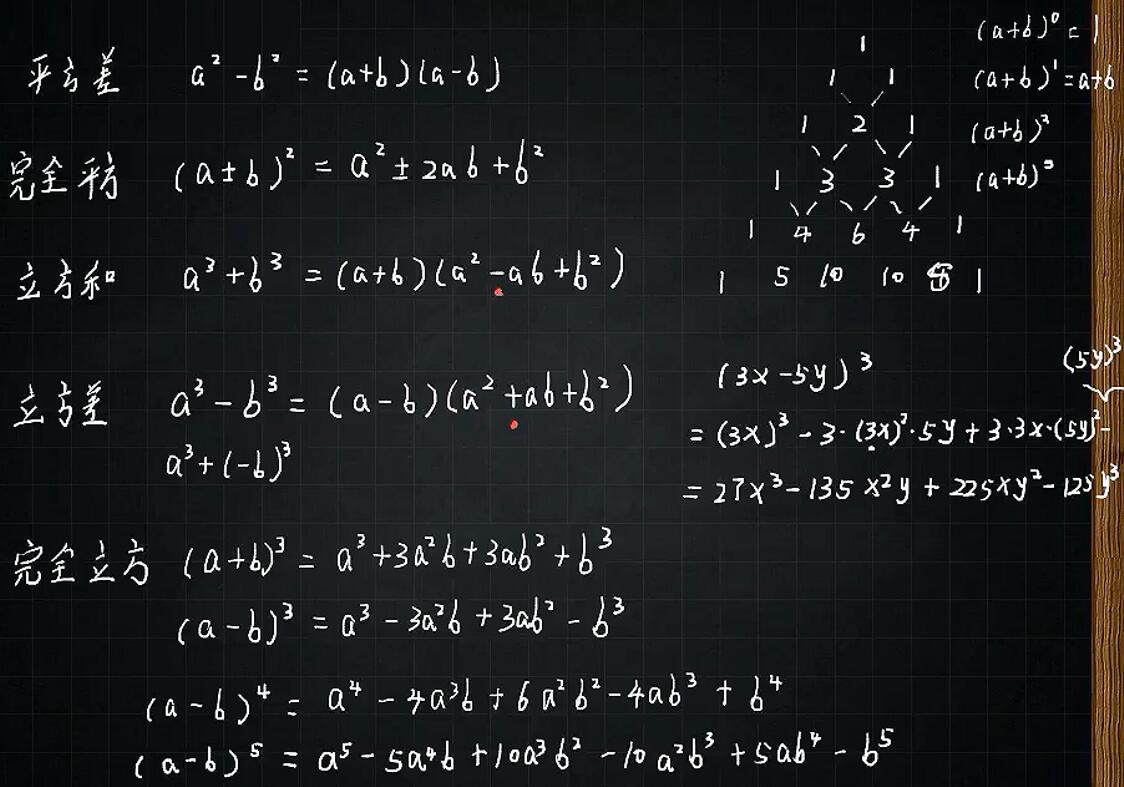 平方差 a² - b² = (a+b)(a-b)
完全平方 (a±b)² = a² ± 2ab + b²
立方和 a³ + b³ = (a+b)(a² - ab + b²)
立方差 a³ - b³ = (a-b)(a² + ab + b²)
a³ + (-b)³
完全立方 (a+b)³ = a³ + 3a²b + 3ab² + b³
(a-b)³ = a³ - 3a²b + 3ab² - b³
(a-b)⁴ = a⁴ - 4a³b + 6a²b² - 4ab³ + b⁴
(a-b)⁵ = a⁵ - 5a⁴b + 10a³b² - 10a²b³ + 5ab⁴ - b⁵
1 (a+b)⁰ = 1
1 1 (a+b)¹ = a+b
1 2 1 (a+b)²
1 3 3 1 (a+b)³
1 4 6 4 1
1 5 10 10 5 1
(3x-5y)³ (5y)³
= (3x)³ - 3·(3x)²·5y + 3·3x·(5y)² -
= 27x³ - 135x²y + 225xy² - 125y³